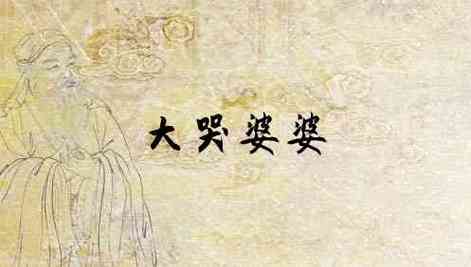 大哭婆婆